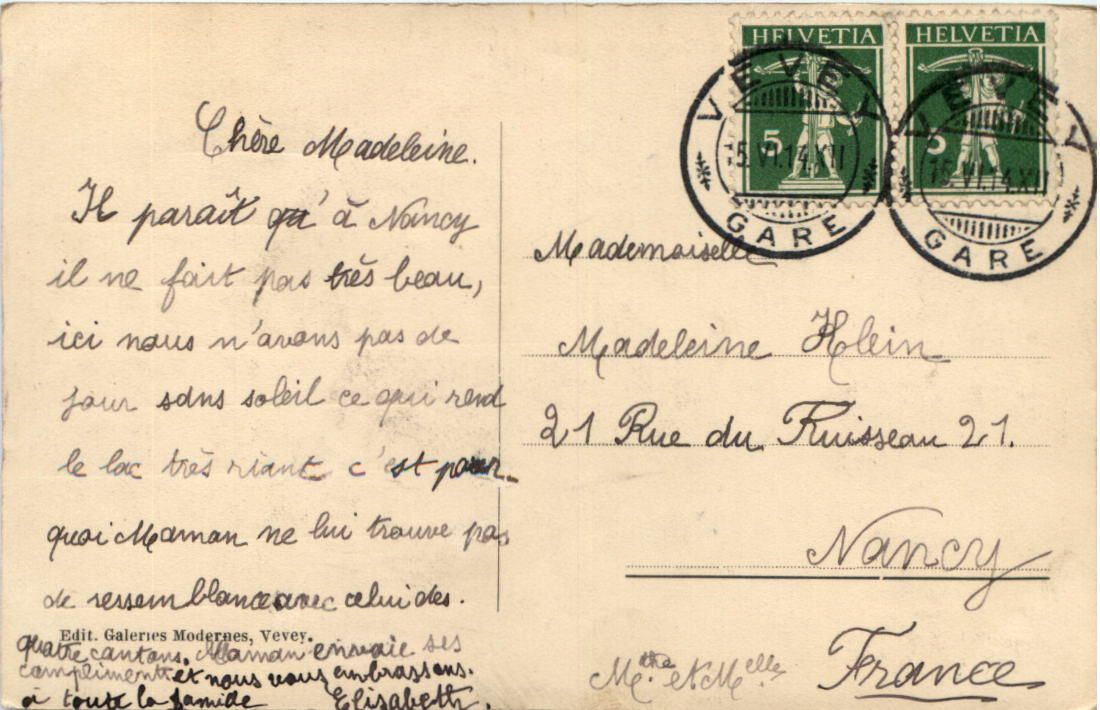 Chère Madeleine.
Il paraît qu'à Nancy
il ne fait pas très beau,
ici nous n'avons pas de
jour sans soleil ce qui rend
le lac très riant c'est pour-
quoi Maman ne lui trouve pas
de ressemblance avec celui des.
Edit. Galeries Modernes, Vevey.
quatre cantons. Maman envoie ses
compliments et nous vous embrassons.
à toute la famille Elisabeth.
HELVETIA
5
HELVETIA
5
VEVEY
15.VI.14.XII
GARE
VEVEY
15.VI.14.XII
GARE
Mademoiselle
Madeleine Klein
21 Rue du Ruisseau 21.
Nancy
France
et Melle